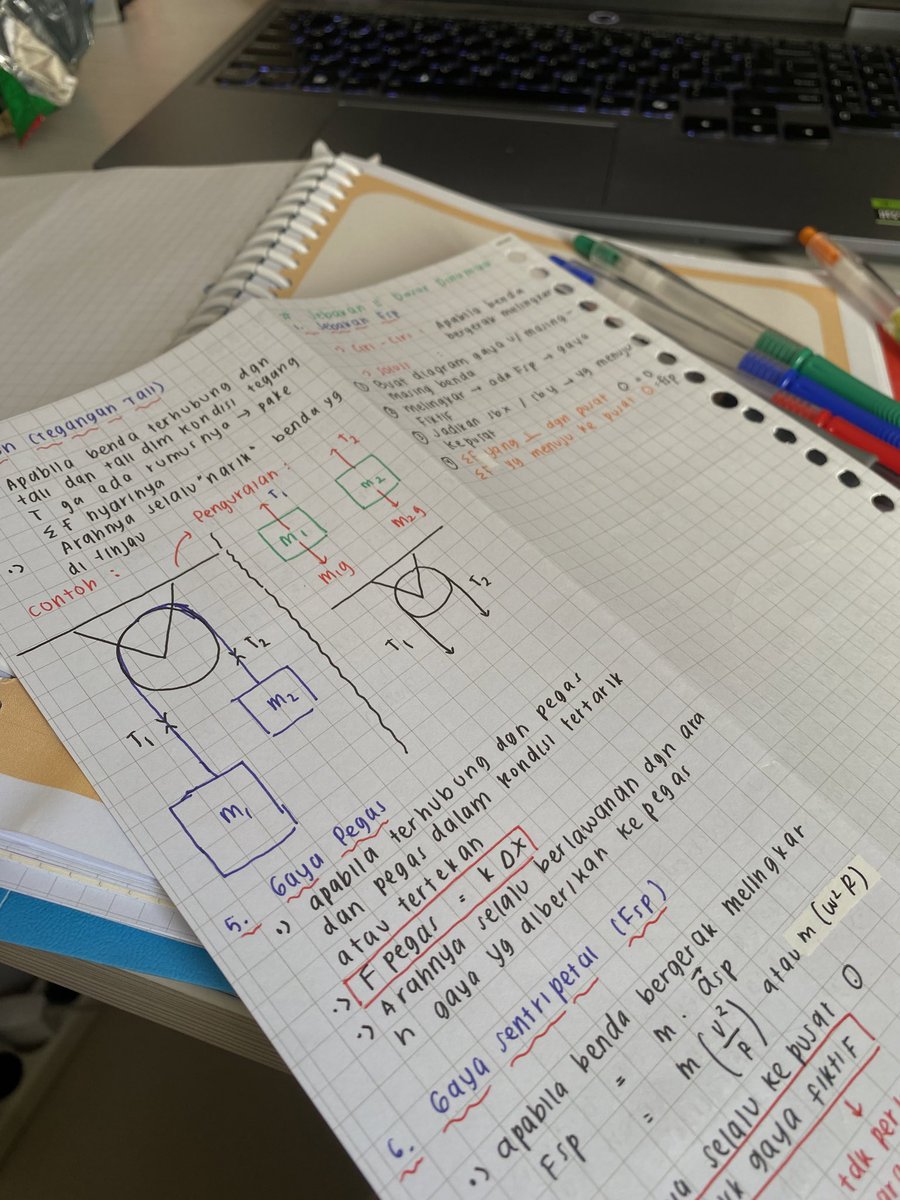 n (Tegangan Tali)
Apabila benda terhubung dgn
tali dan tali dlm kondisi tegang
T ga ada rumusnya → pake
ΣF nyarinya
•) Arahnya selalu "narik" benda yg
di tinjau
contoh :
Penguraian :
T₁
m₁
m₁g
T₂
m₂
m₂g
T₁
T₂
T₁
T₂
m₁
m₂
5. Gaya Pegas
•) apabila terhubung dgn pegas
dan pegas dalam kondisi tertarik
atau tertekan
•) F pegas = k Δx
•) Arahnya selalu berlawanan dgn ara
h gaya yg diberikan ke pegas
6. Gaya sentripetal (Fsp)
•) apabila benda bergerak melingkar
Fsp = m. asp
= m(v²/R) atau m(ω²R)
selalu ke pusat O
gaya fiktif
tdk per
# Jebakan² Dasar Dinamika
1. Jebakan Fsp
→ Ciri - Ciri : Apabila benda
bergerak melingkar
→ solusi :
① Buat diagram gaya u/ masing-
masing benda
② melingkar → ada Fsp → gaya
fiktif
③ Jadikan sbx / sby → yg menuju
ke pusat
④ ΣF yang ⊥ dgn pusat O = 0
ΣF yg menuju ke pusat O = Fsp